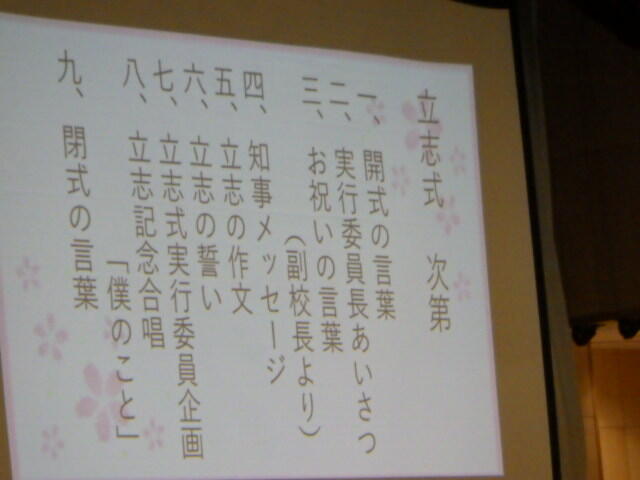 立志式　次第
一、開式の言葉
二、実行委員長あいさつ
三、お祝いの言葉
（副校長より）
四、知事メッセージ
五、立志の作文
六、立志の誓い
七、立志式実行委員企画
八、立志記念合唱
「僕のこと」
九、閉式の言葉